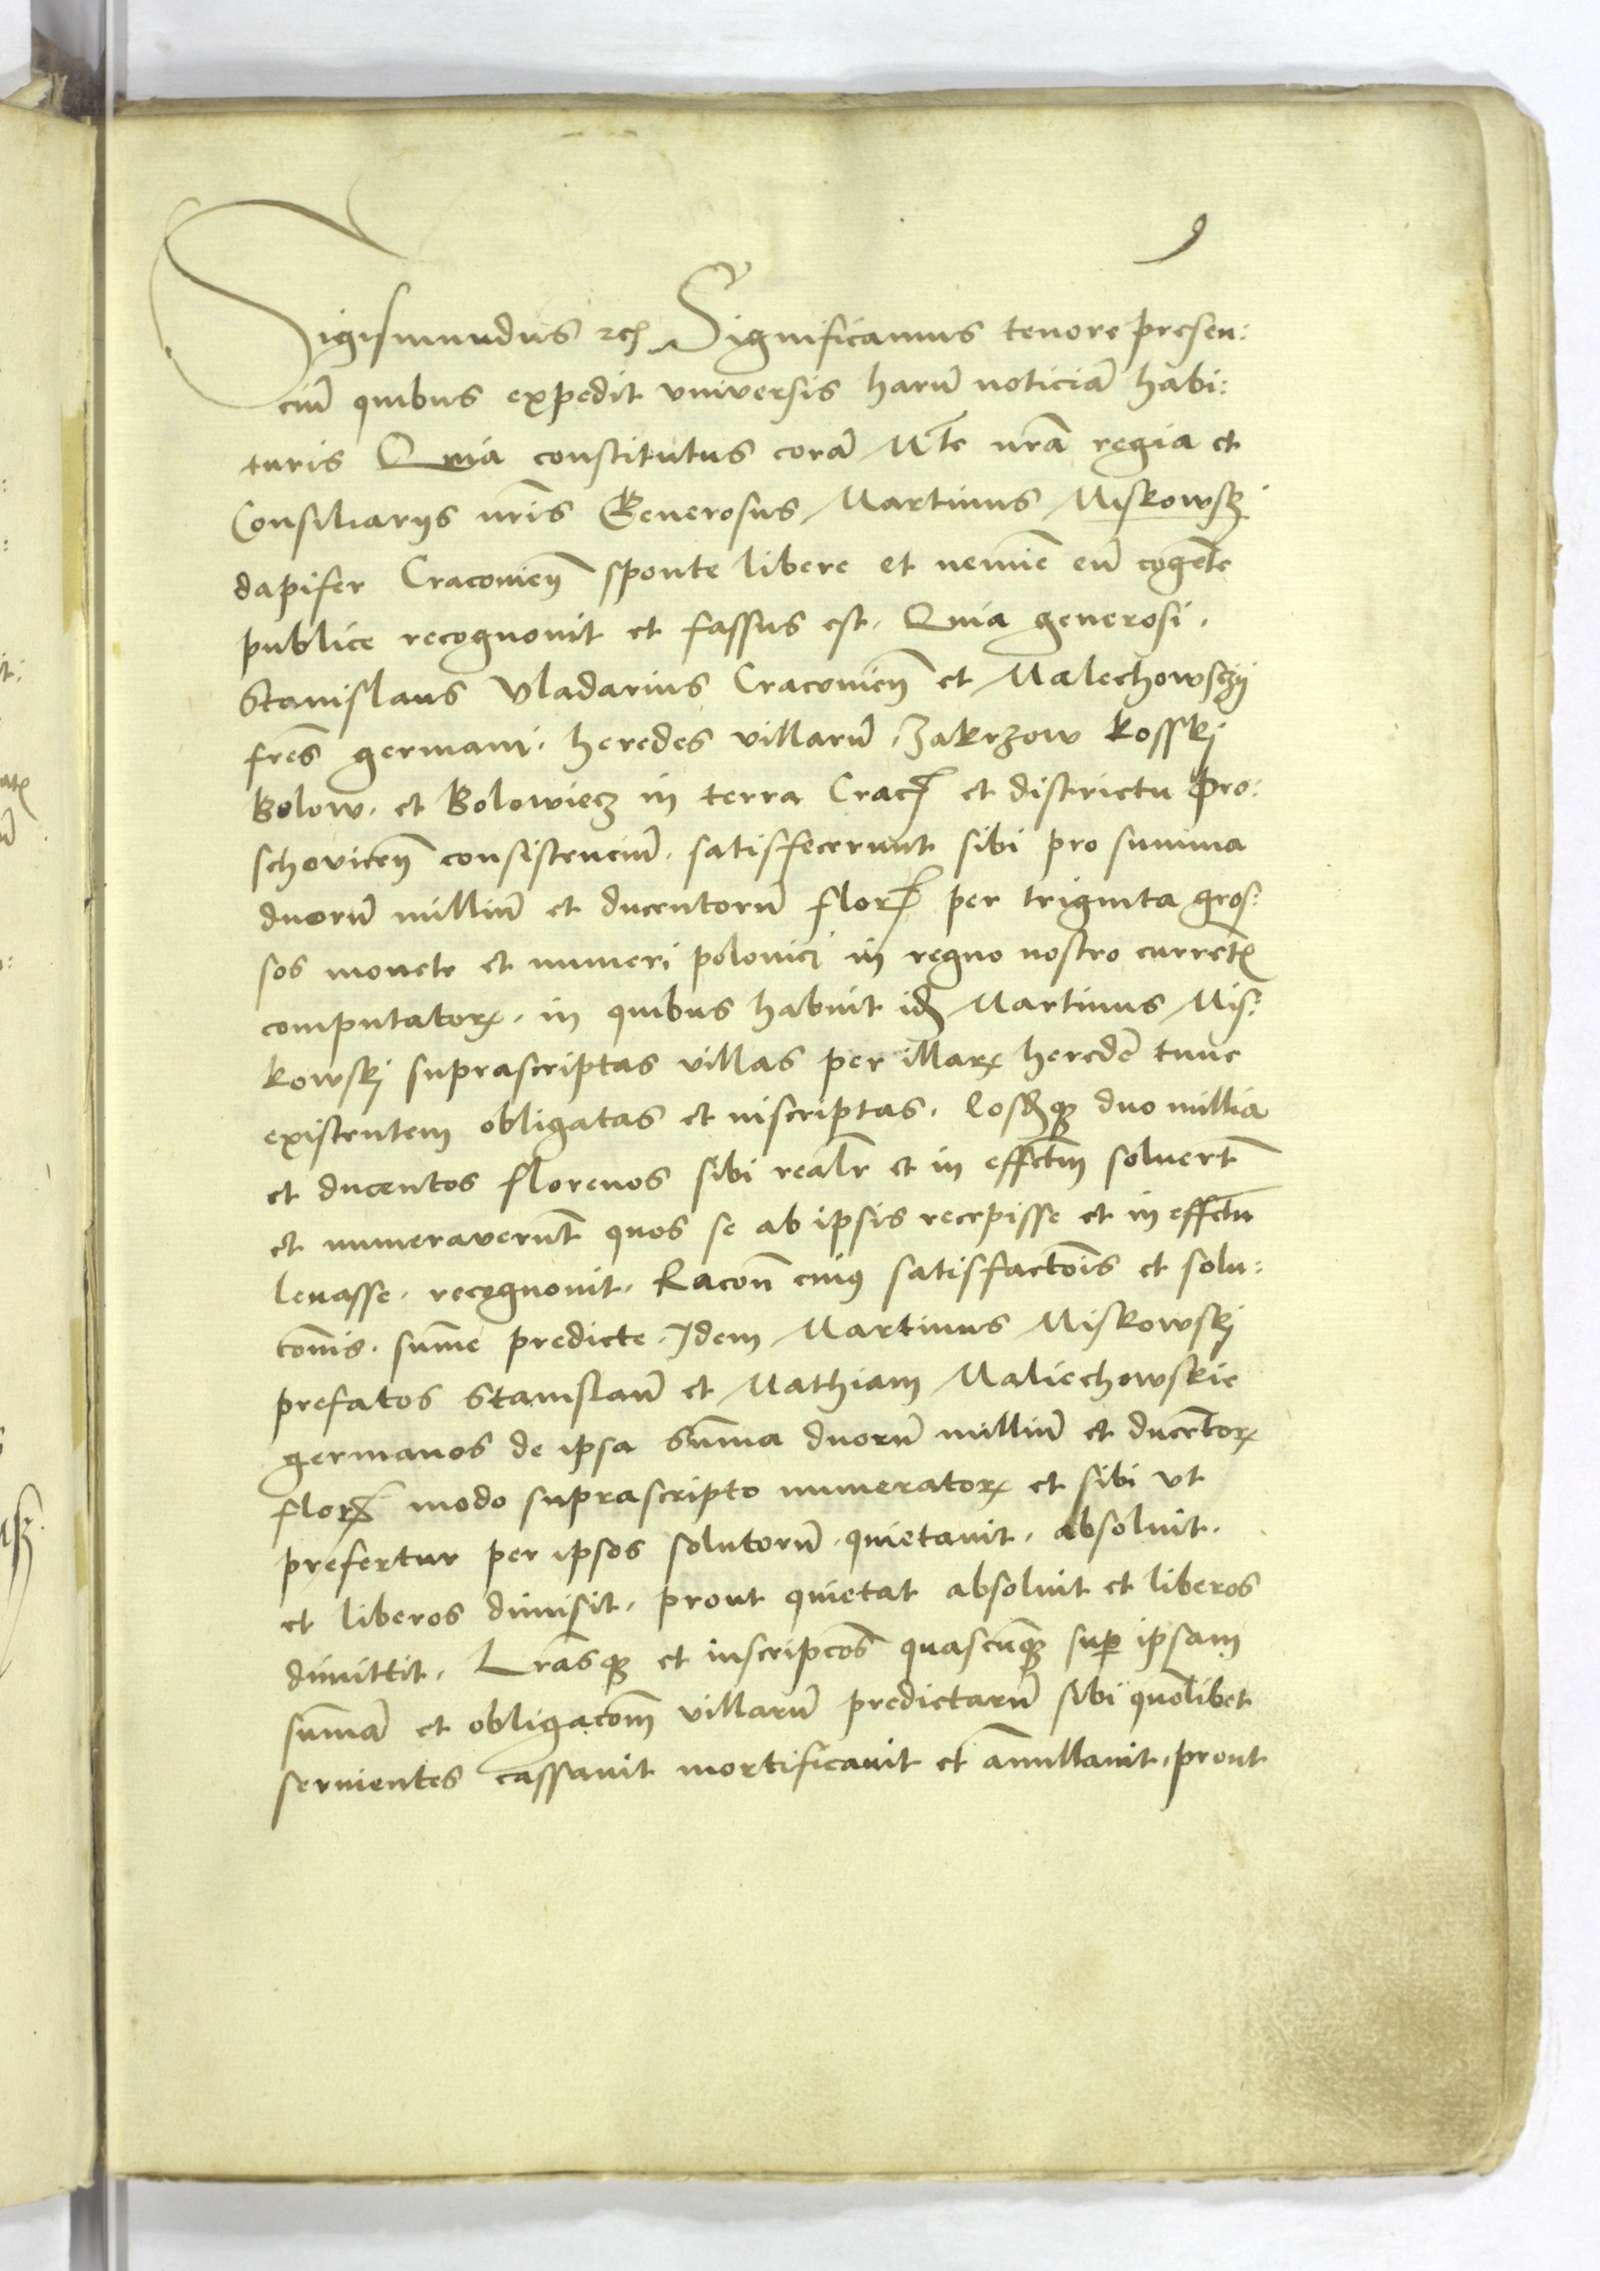 9
Sigismundus etc. Significamus tenore presen:
ciu̅ quibus expedit vniuersis haru̅ noticia̅ habi:
turis Quia constitutus cora̅ Mte nr̅a regia et
Consiliarijs nr̅is Generosus Martinus Miskowskj
dapifer Cracouien̅ sponte libere et nemi̅e eu̅ coge̅te
publice recognouit et fassus est. Quia generosi.
Stanislaus Vladarius Cracouien̅ et Malechowsczij
fre̅s germani. heredes villaru̅ Zakrzow Kosskj
Bolow. et Bolowiecz in terra Crac̅ et districtu Pro:
schouicen̅ consistenciu̅. satisfecerunt sibi pro summa
duoru̅ milliu̅ et ducentoru̅ flor̅ per triginta gros:
sos monete et numeri polonicj in regno nostro curre̅t̅
computatorꝝ. in quibus habuit id̅ Martinus Mis:
kowskj suprascriptas villas per illarꝝ herede̅ tunc
existentem obligatas et inscriptas. Eosdq̅ꝫ duo millia
et ducentos florenos sibi real̅r et in effctm̅ soluert̅
et numeraueru̅t quos se ab ipsis recepisse et in effctu
leuasse. recognouit. Racon̅e cuiꝰ satisfacto̅is et solu:
to̅nis. sum̅e predicte. Idem Martinus Miskowskj
prefatos Stanislau̅ et Mathiam Maliechowskie
germanos de ipsa Su̅ma duoru̅ milliu̅ et duce̅torꝝ
flor̅ modo suprascripto numeratorꝝ et sibi vt
prefertur per ipsos solutoru̅. quietauit. absoluit.
et liberos dimisit. prout quietat absoluit et liberos
dimittit. Lr̅asqꝫ et inscripco̅es quascu̅qꝫ sup̅ ipsam
su̅ma̅ et obligaco̅m villaru̅ predictaru̅ sibi quol̅ibet
seruientes cassauit mortificauit et an̅ullauit. prout